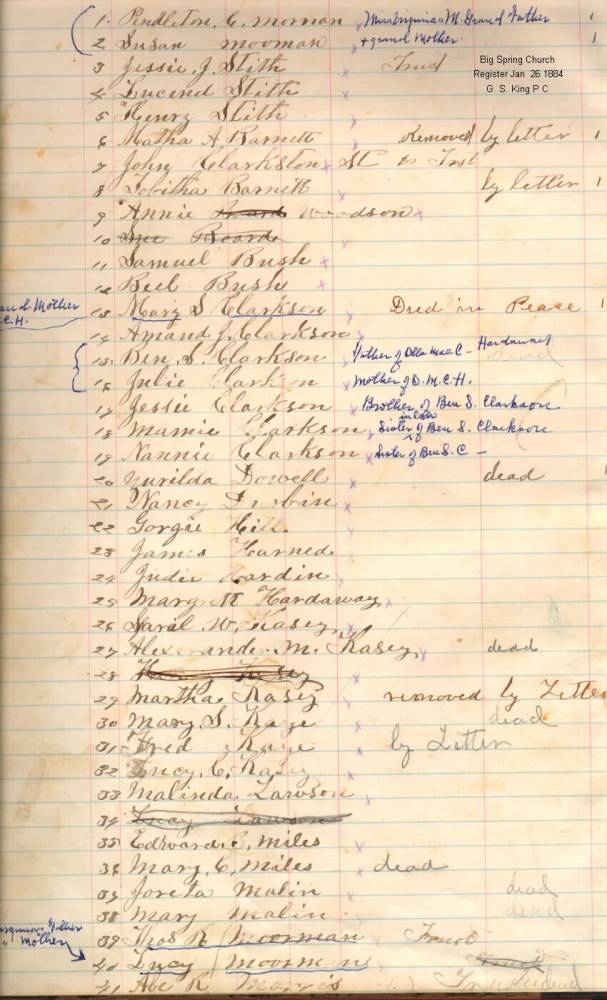 1. Pendleton, C. mornan Miss Virginia's M. Grand Father 1
2 Susan moorman + grand Mother. 1
Big Spring Church
Register Jan 26 1884
G. S. King P C
3 Jessie J. Stith Trust
4 Lucind Stith
5 Henry Stith
6 Matha A, Barnett Removed by letter 1
7 John Clarkston St to Trst
8 Lebitha Barnett by letter 1
9 Annie Board Woodson
10 Sue Board
11 Samuel Bush
12 Bell Bush
and Mother
C.H.
13 Mary S Clarkson Died in Peace 1
14 Amand J. Clarkson
15. Ben, S. Clarkson Father of Olla Mae. C - Hardaway dead
16 Julie Clarkson Mother of O. M. C. H.
17 Jessie Clarkson Brother of Ben S. Clarkson
18 Mamie Clarkson Sister in law of Ben S. Clarkson
19 Nannie Clarkson Sister of Ben S. C -
20 Zurilda Dowell dead 1
21 Nancy
22 Gorgie Hill.
23 James Harned
24 Judie Hardin
25 Margrett Hardaway
26 W. Kasey
27 Alexander M. Kasey dead
28 Kasey
29 Martha Kasey removed by Letter
30 Mary. S. Kaye dead
31 Fred Kaye by Letter
32 Lucy. C. Kasey
33 Malinda Lawson
34 Lucy Lawson
35 Edward. C, miles
36 Mary. C, miles dead
37 Joreta Malin dead
38 Mary Malin dead
Father
" Mother
39 Thos R Moorman Trust
40 Lucy Moorman
41 Abe R Morris dead